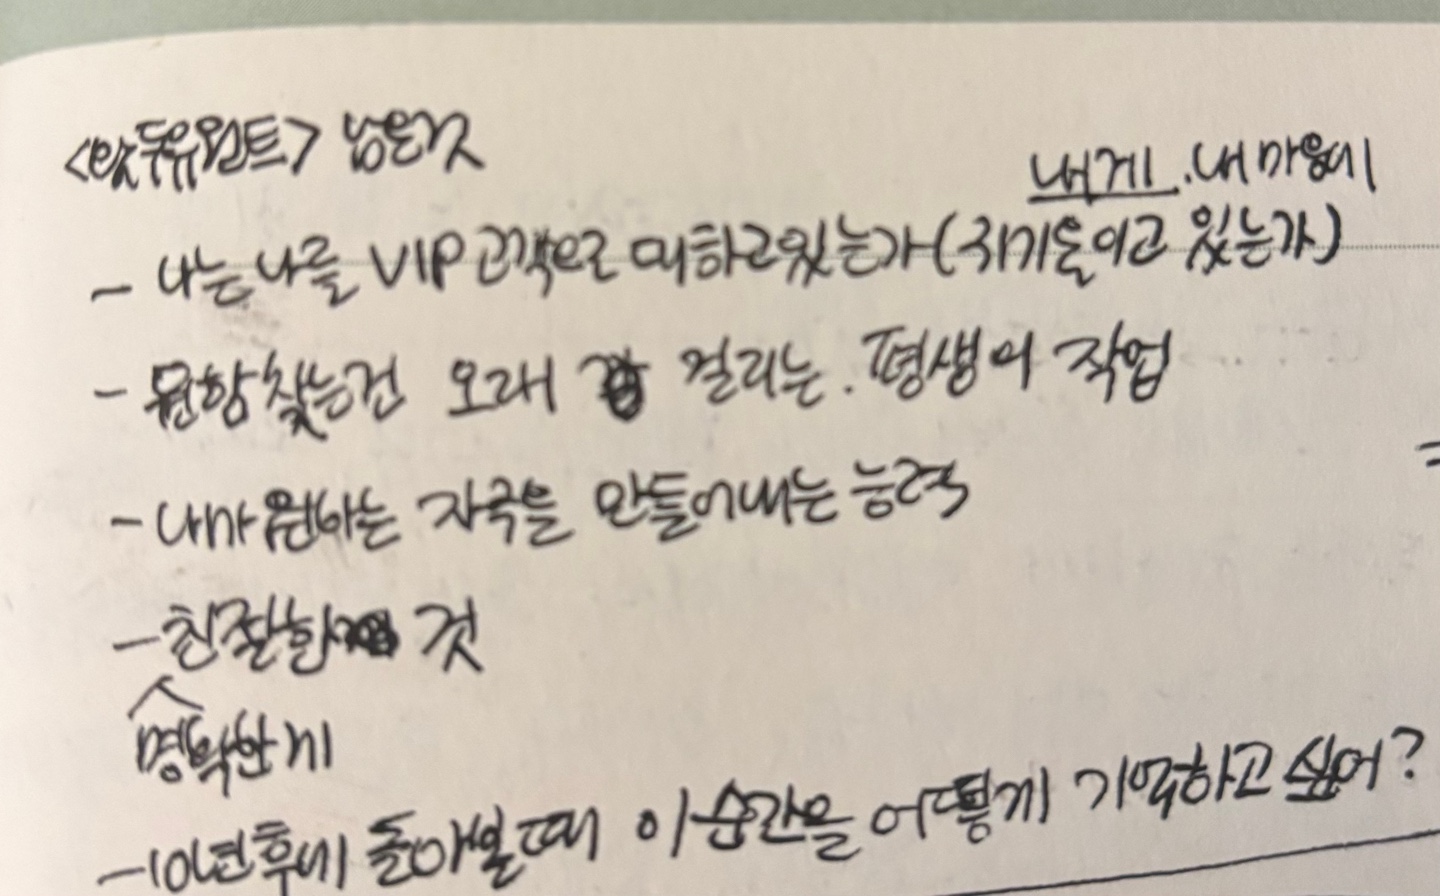 <왓두유원트> 남은것
내게. 내 마음에
- 나는 나를 VIP 고객으로 대하고있는가 (귀기울이고 있는가)
- 원항찾는건 오래 걸리는. 평생의 작업
- 내가 원하는 자극을 만들어내는 능력
- 친절한 것
명확한게
- 10년후에 돌아볼때 이 순간을 어떻게 기억하고 싶어?